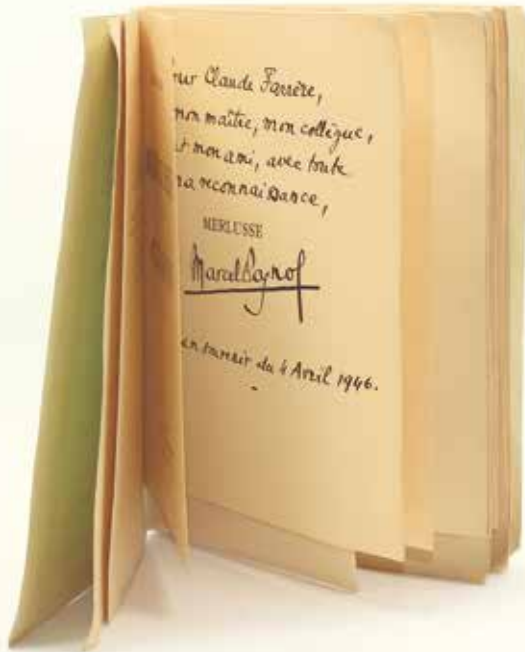 Pour Claude Farrère,
mon maître, mon collègue,
et mon ami, avec toute
ma reconnaissance,
MERLUSSE
Marcel Pagnol
en souvenir du 4 Avril 1946.